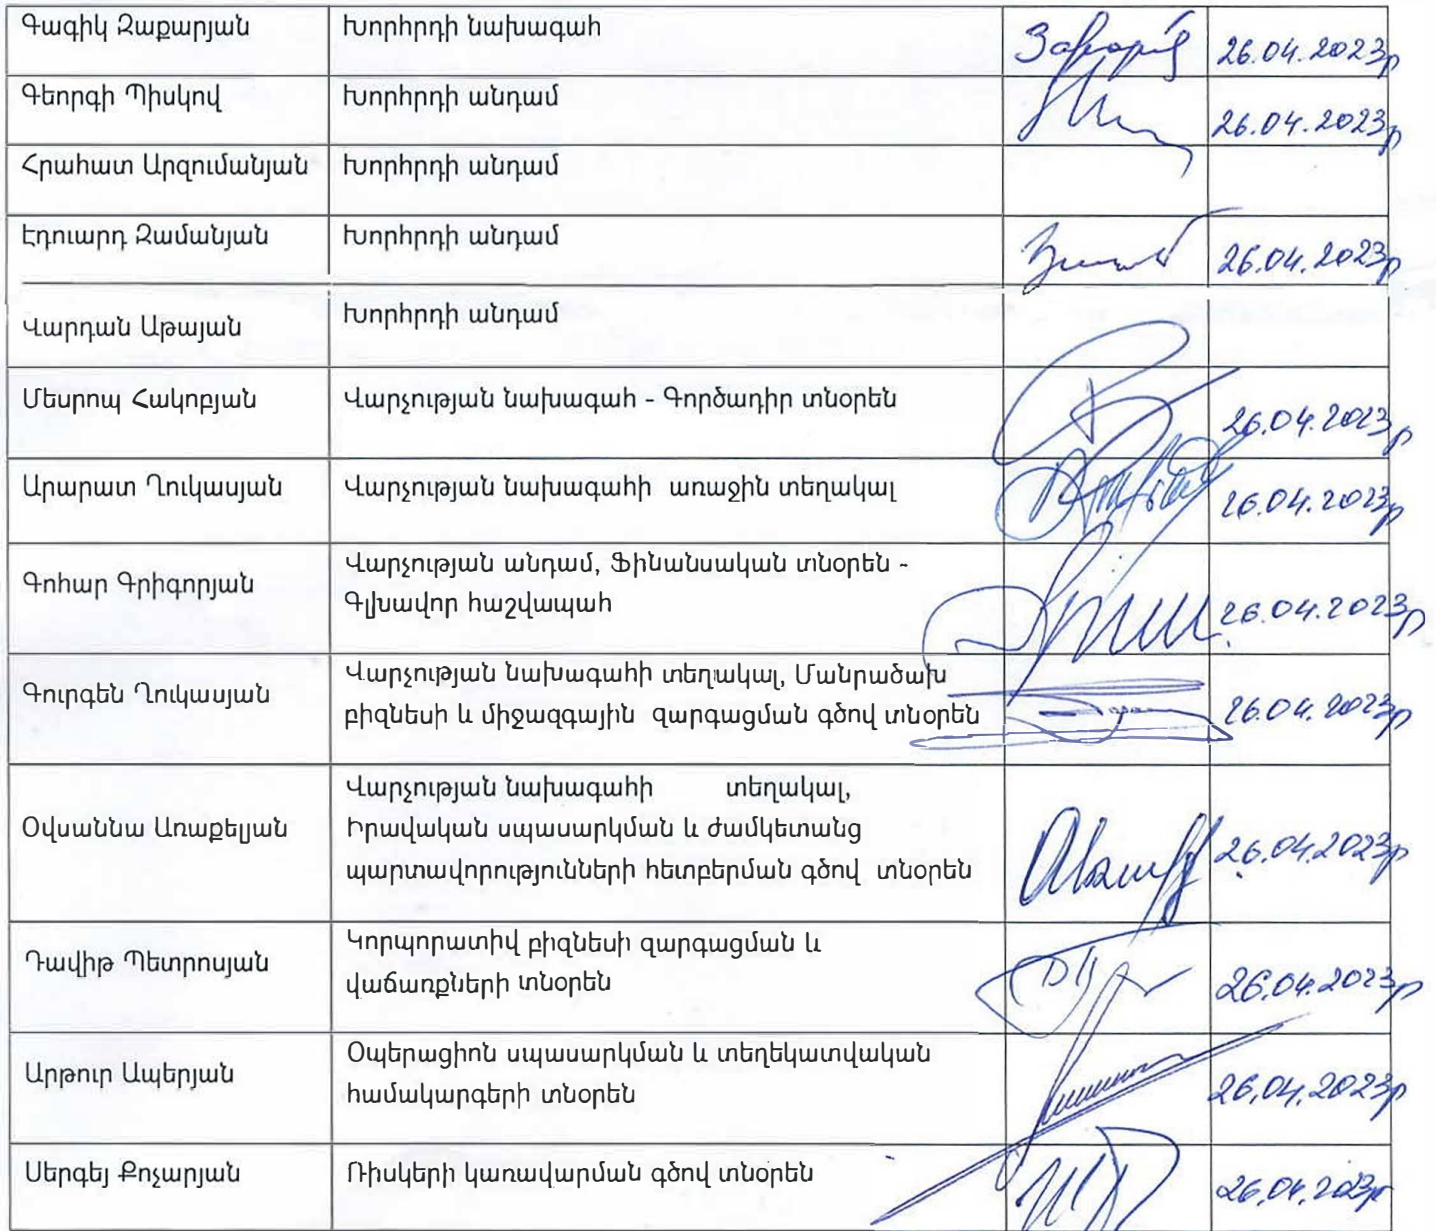 Գագիկ Զաքարյան Խորհրդի նախագահ 26.04.2023թ
Գեորգի Պիսկով Խորհրդի անդամ 26.04.2023թ
Հրահատ Արզումանյան Խորհրդի անդամ
Էդուարդ Զամանյան Խորհրդի անդամ 26.04.2023թ
Վարդան Աթայան Խորհրդի անդամ
Մեսրոպ Հակոբյան Վարչության նախագահ - Գործադիր տնօրեն 26.04.2023թ
Արարատ Ղուկասյան Վարչության նախագահի առաջին տեղակալ 26.04.2023թ
Գոհար Գրիգորյան Վարչության անդամ, Ֆինանսական տնօրեն -
Գլխավոր հաշվապահ 26.04.2023թ
Գուրգեն Ղուկասյան Վարչության նախագահի տեղակալ, Մանրածախ
բիզնեսի և միջազգային զարգացման գծով տնօրեն 26.04.2023թ
Վարչության նախագահի տեղակալ,
Օվսաննա Առաքելյան Իրավական սպասարկման և ժամկետանց 26.04.2023թ
պարտավորությունների հետբերման գծով տնօրեն
Դավիթ Պետրոսյան Կորպորատիվ բիզնեսի զարգացման և
վաճառքների տնօրեն 26.04.2023թ
Արթուր Ապերյան Օպերացիոն սպասարկման և տեղեկատվական
համակարգերի տնօրեն 26.04.2023թ
Սերգեյ Քոչարյան Ռիսկերի կառավարման գծով տնօրեն 26.04.2023թ